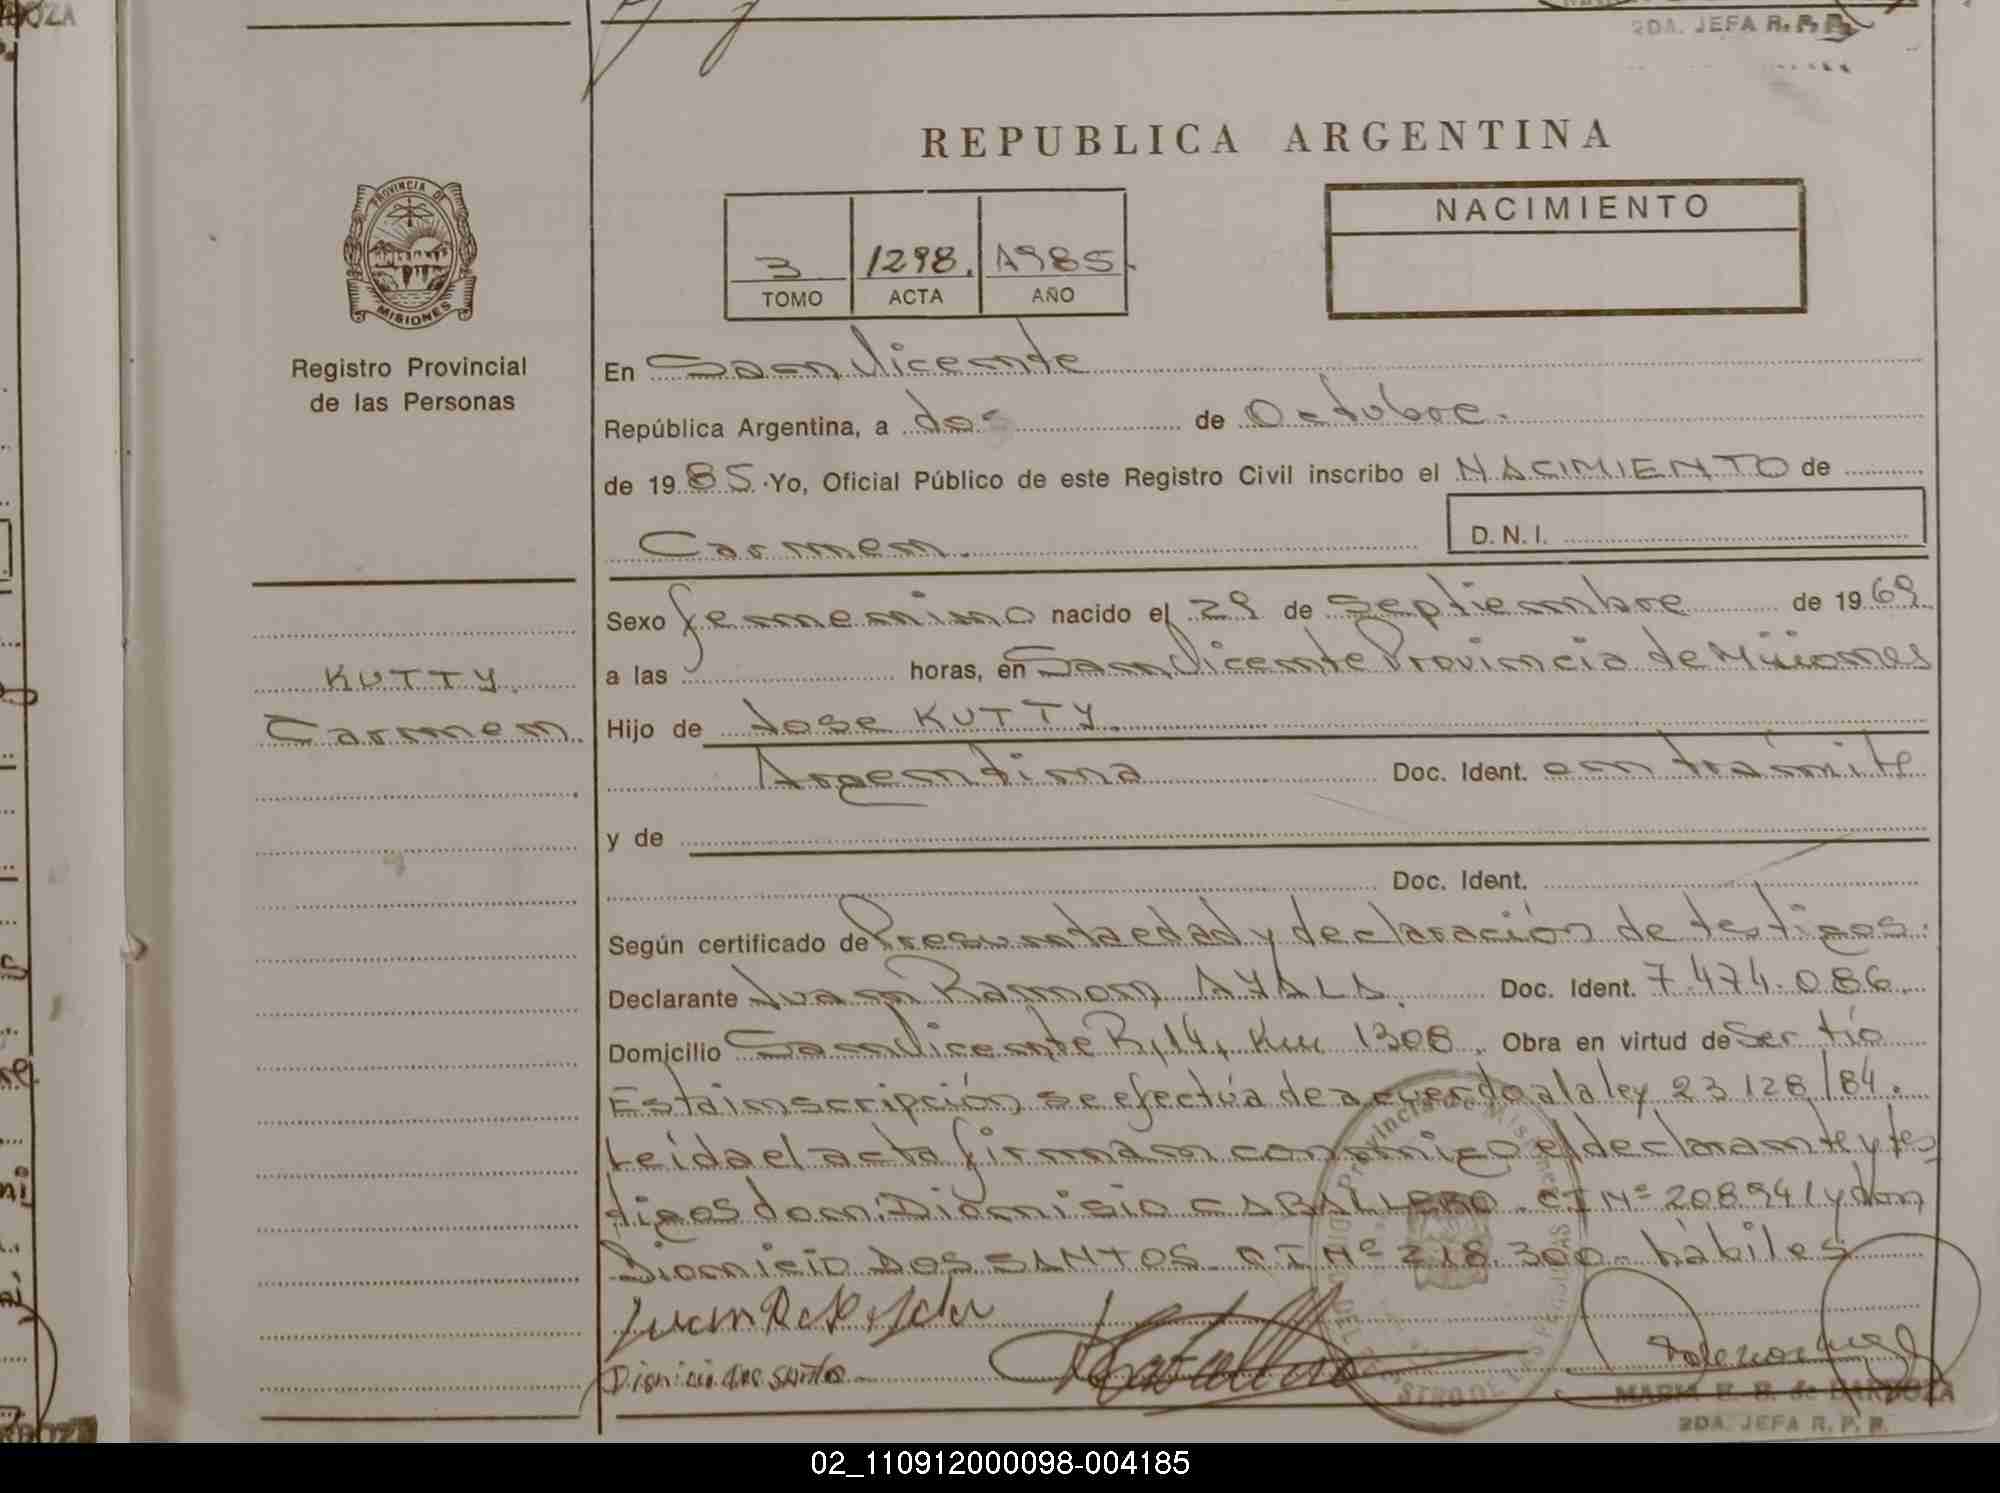 2DA. JEFA R. P. P.
REPUBLICA ARGENTINA
PROVINCIA DE
MISIONES
NACIMIENTO
3 1298. 1985.
TOMO ACTA AÑO
Registro Provincial
de las Personas
En San Vicente
República Argentina, a dos de Octubre.
de 1985. Yo, Oficial Público de este Registro Civil inscribo el NACIMIENTO de
Carmen.
D. N. I.
Sexo femenino nacido el 29 de Septiembre de 1969.
KUTTY.
Carmen.
a las horas, en San Vicente Provincia de Misiones
Hijo de Jose KUTTY.
Argentina Doc. Ident. en trámite
y de
Doc. Ident.
Según certificado de Presunta edad y declaración de testigos.
Declarante Juan Ramon AYALA. Doc. Ident. 7.474.086.
Domicilio San Vicente R, 14, Km 1308. Obra en virtud de Ser tío
Esta inscripción se efectúa de acuerdo a la ley 23 128/84.
Leída el acta firman conmigo el declarante y tes
tigos don: Dionisio CABALLERO. CI Nº 208941 y don
Dionicio DOS SANTOS. CI Nº 218.300- hábiles
Dionicio dos santos
MARIA E. B. de BARBOZA
2DA. JEFA R. P. P.
02_110912000098-004185